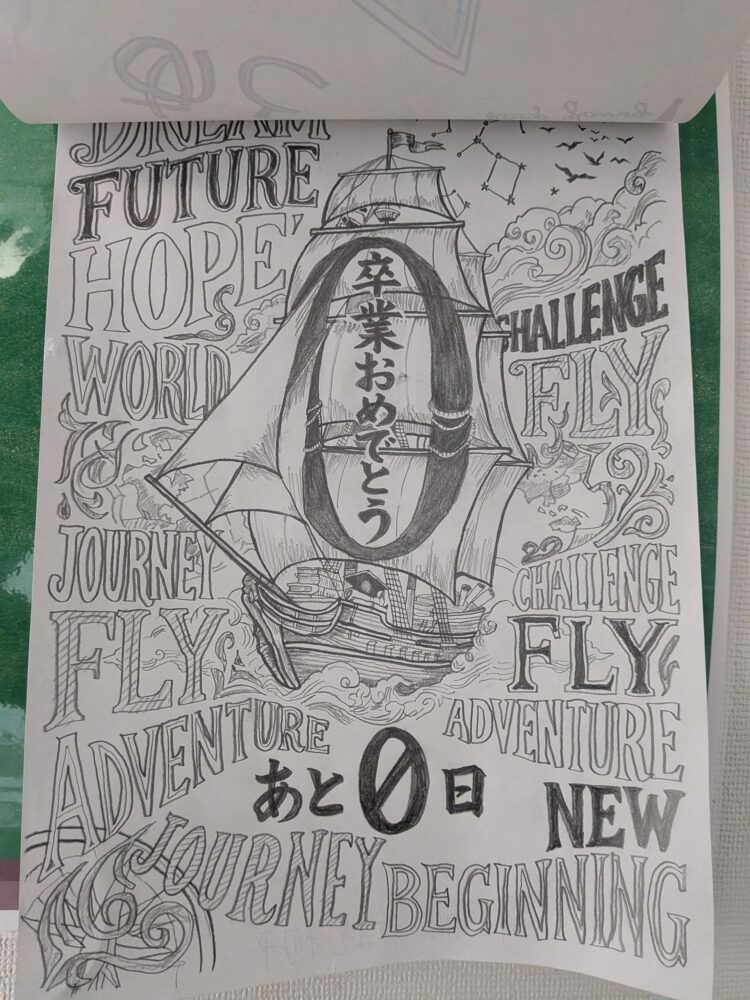 DREAM
FUTURE
HOPE
WORLD
JOURNEY
FLY
ADVENTURE
JOURNEY
0
卒業おめでとう
CHALLENGE
FLY
CHALLENGE
FLY
ADVENTURE
あと0日
NEW
BEGINNING